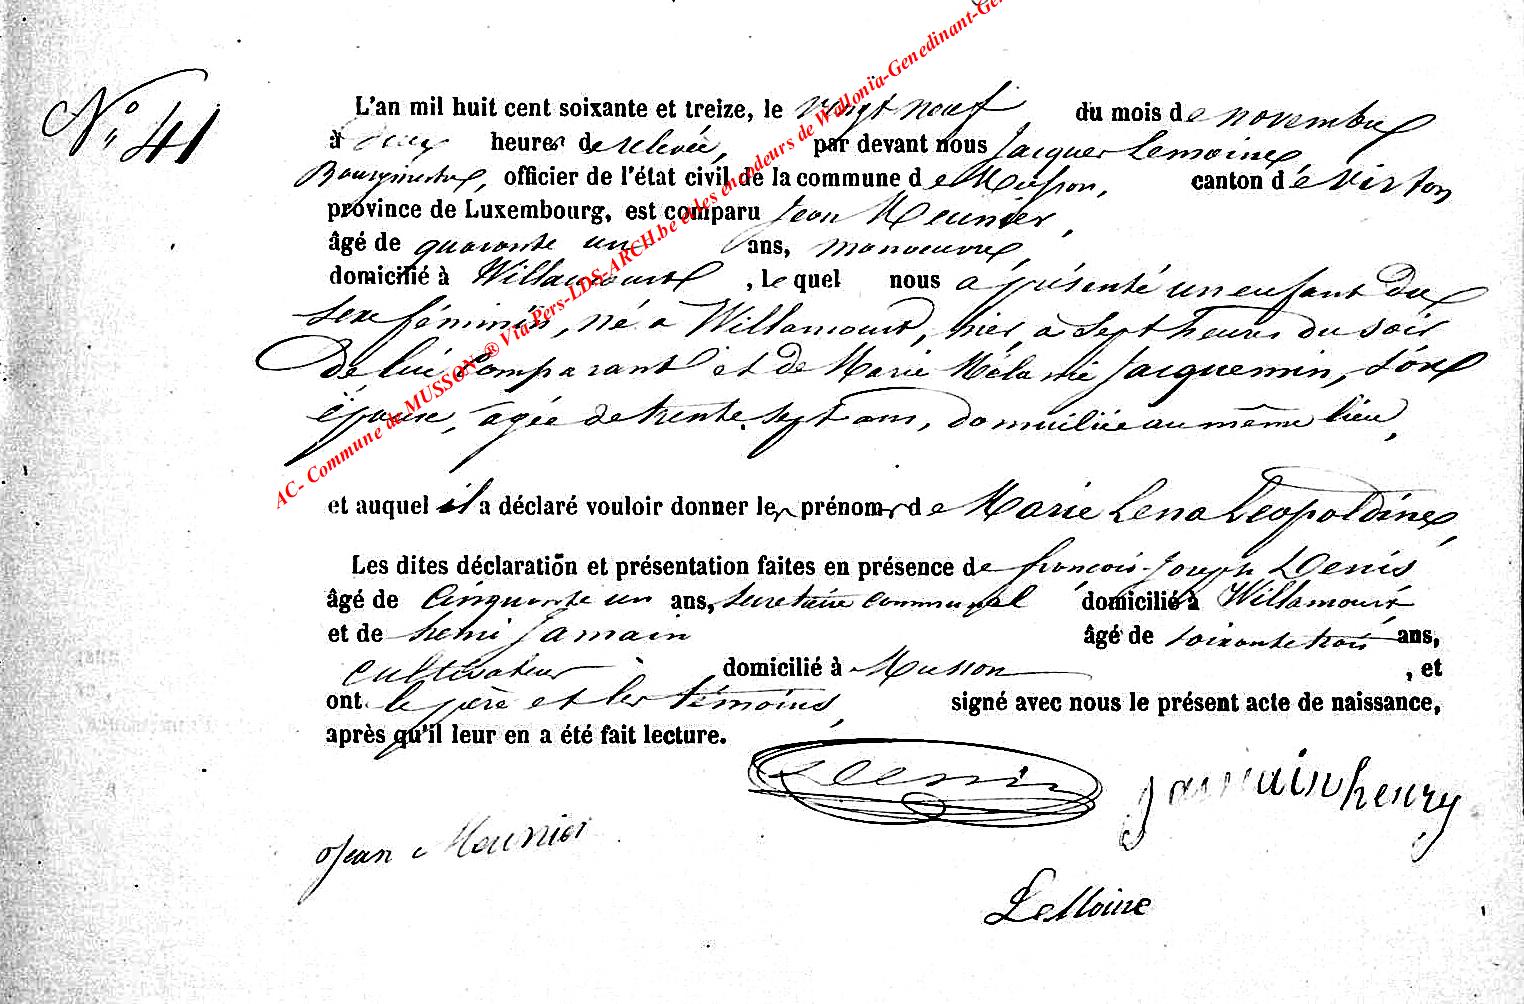 N° 41
L'an mil huit cent soixante et treize, le vingt neuf du mois de novembre
à deux heures de relevée, par devant nous Jacques Lemoine
Bourgmestre, officier de l'état civil de la commune de Musson, canton de Virton
province de Luxembourg, est comparu Jean Meunier,
âgé de quarante un ans, manoeuvre,
domicilié à Willancourt, lequel nous a présenté un enfant du
sexe féminin, né a Willancourt, hier, a sept heures du soir
de lui comparant et de Marie Mélanie Jacquemin, son
épouse, agée de trente sept ans, domiciliée au même lieu,
et auquel il a déclaré vouloir donner les prénoms de Marie Lena Leopoldine,
Les dites déclaration et présentation faites en présence de françois-Joseph Denis
âgé de cinquante un ans, secretaire communal domicilié à Willancourt
et de henri Jamain âgé de soixante trois ans,
cultivateur domicilié à Musson, et
ont le père et les témoins, signé avec nous le présent acte de naissance,
après qu'il leur en a été fait lecture.
Denis
Jamain henry
Jean Meunier
LeMoine
AC- Commune de MUSSON ® Via Pers-LDS-ARCH.be et les encodeurs de Wallonia-Genedinant-Ge